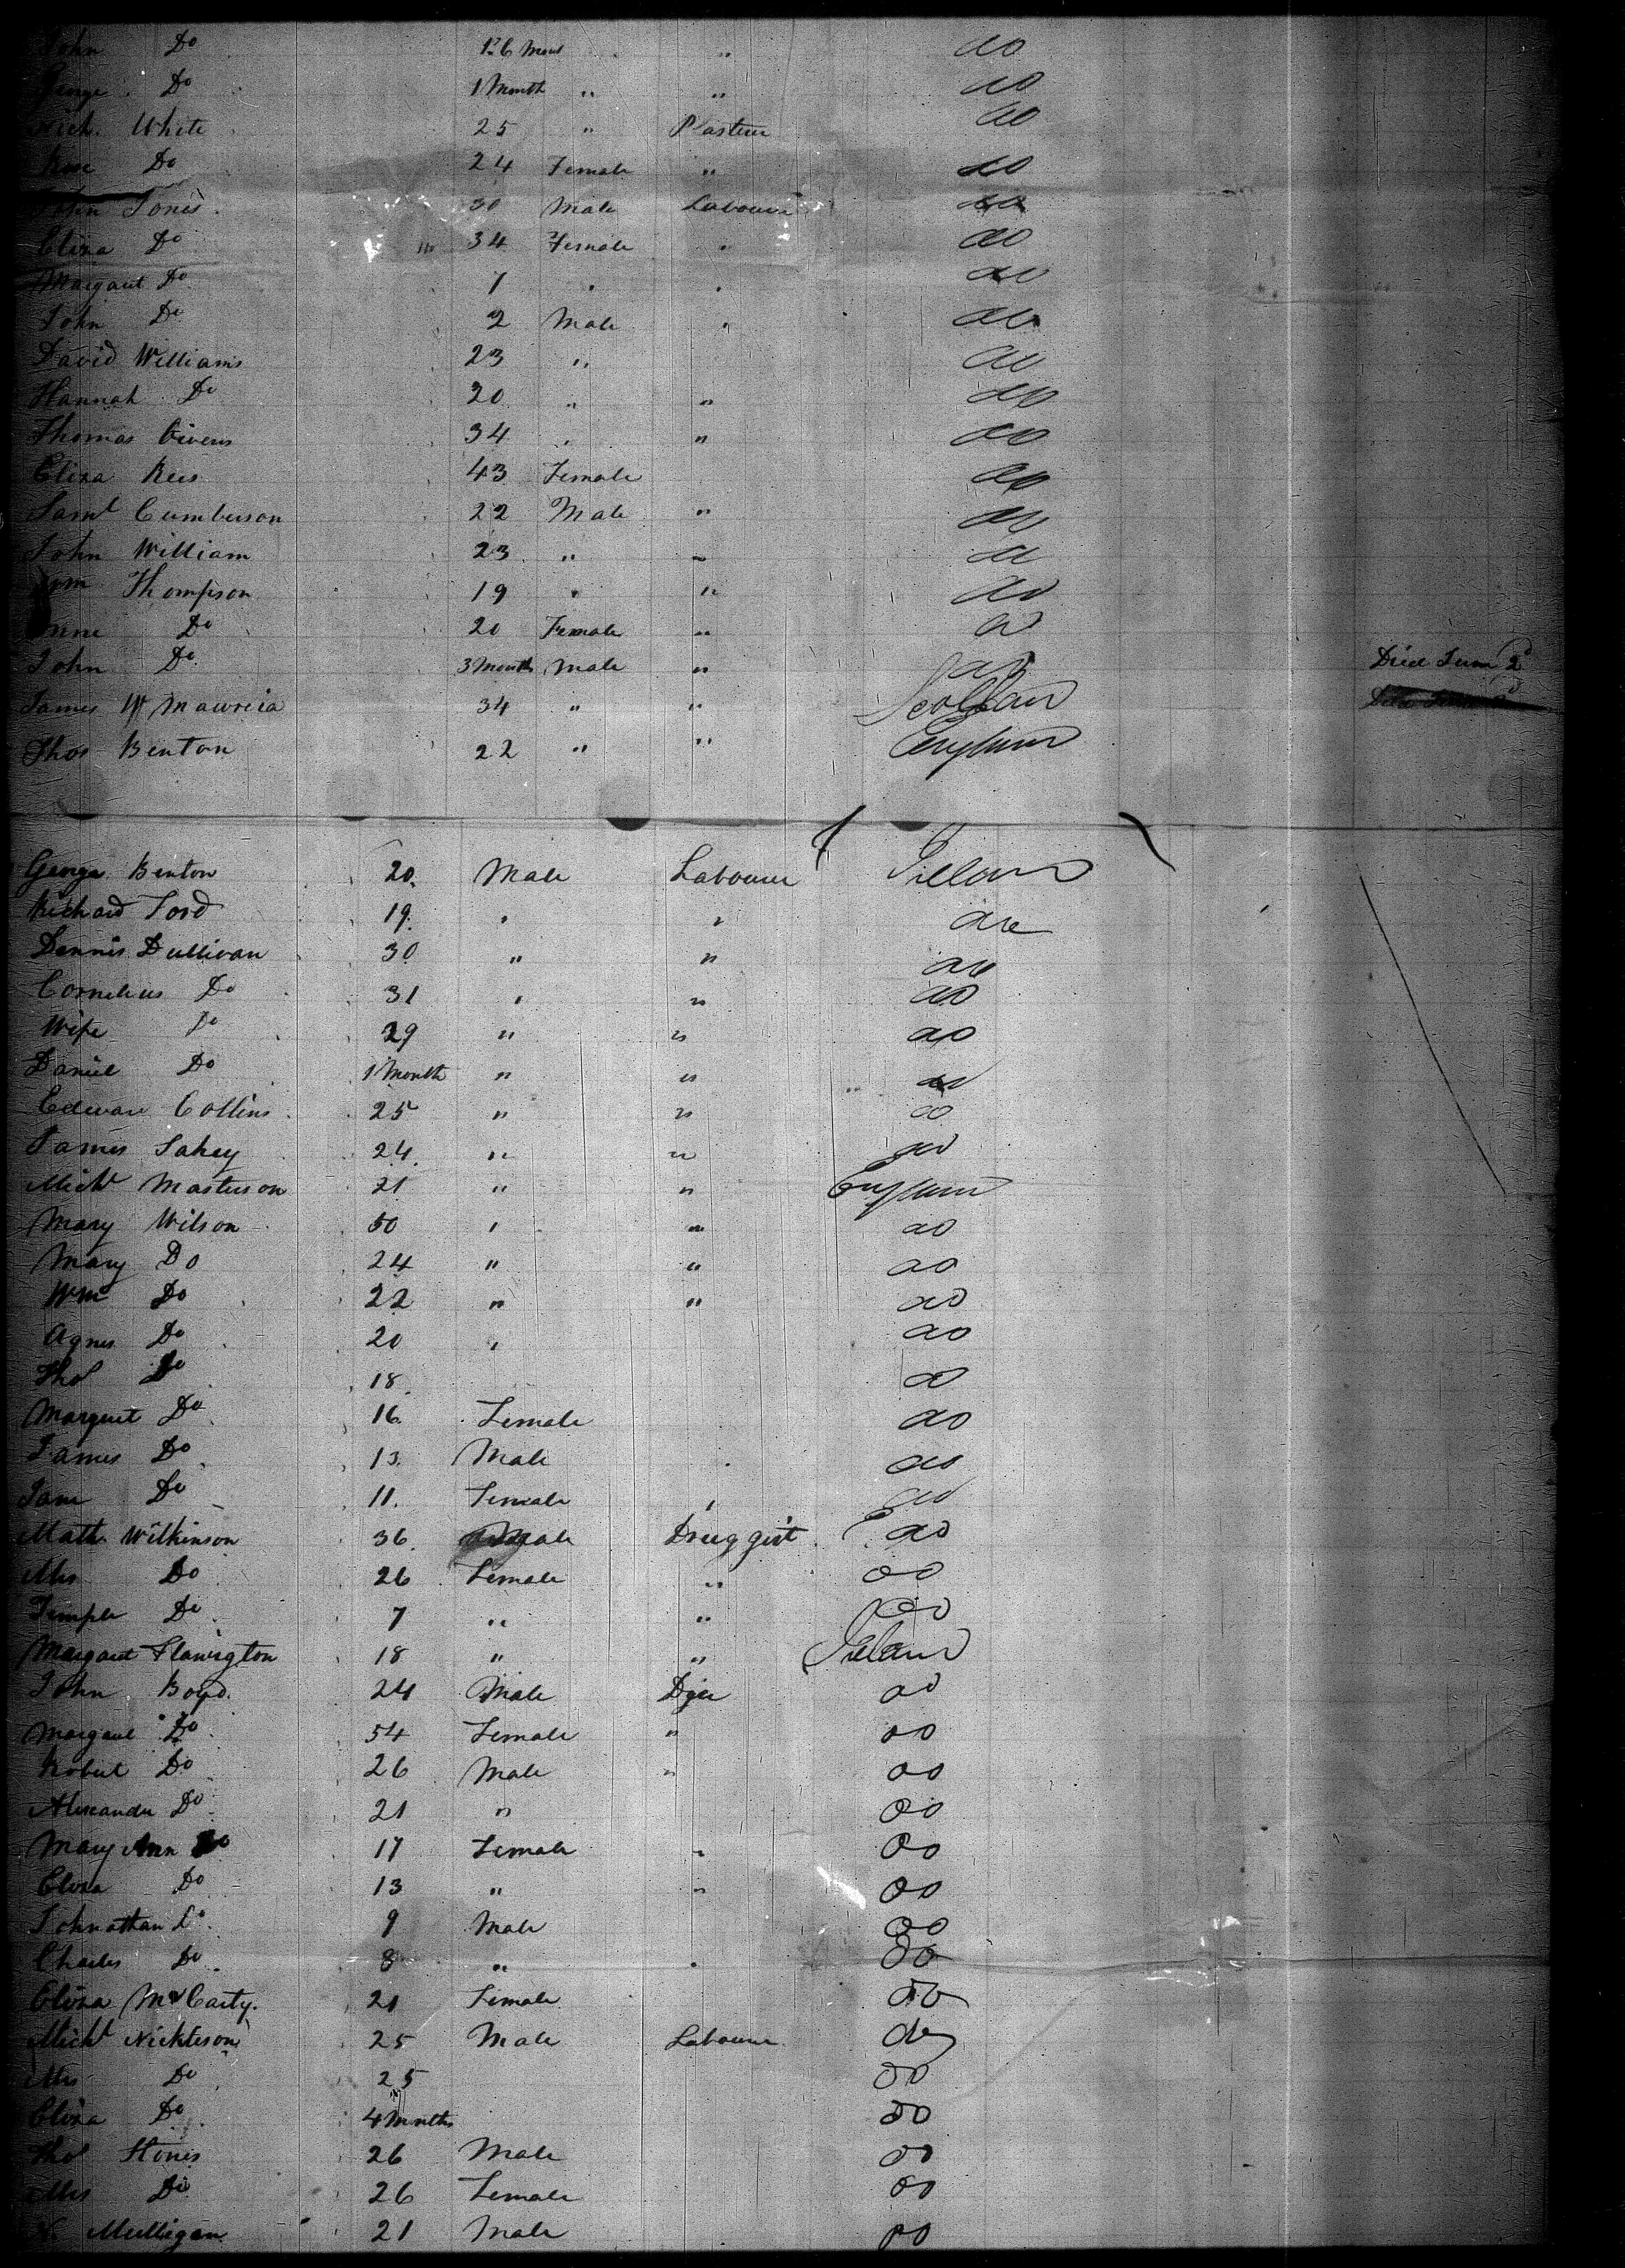 John Do 1 & 6 Mont " do
George Do 1 Month " " do
Nich. White 25 " Plasterer do
Rose Do 24 Female " do
John Jones 30 Male Labourer do
Eliza Do 34 Female " do
Margaret Do 1 " " do
John Do 2 Male " do
David Williams 23 " do
Hannah Do 20 " " do
Thomas Givens 34 " " do
Eliza Rees 43 Female do
Saml Cumberson 22 Male " do
John William 23 " " do
Wm Thompson 19 " " do
Anne Do 20 Female " do
John Do 3 Months Male " do Died June 2d
James 34 " " Scotland
Thos Benton 22 " " England
George Benton 20 Male Labourer Ireland
Richard Ford 19 " " do
Dennis Sullivan 30 " " do
Cornelius Do 31 " " do
Wife Do 29 " " do
Daniel Do 1 Month " " do
Edward Collins 25 " " do
James Fahey 24 " " do
Michl Masterson 21 " " England
Mary Wilson 50 " " do
Mary Do 24 " " do
Wm Do 22 " " do
Agnes Do 20 " do
Thos Do 18 do
Margret Do 16 Female do
James Do 13 Male do
Jane Do 11 Female " do
Math Wilkinson 36 Male Druggist do
Mrs Do 26 Female " do
Temple Do 7 " " do
Margaret 18 " " Ireland
John Boyd 24 Male Dyer do
Margaret Do 54 Female " do
Robert Do 26 Male " do
Alexander Do 21 " do
Mary Ann Do 17 Female " do
Eliza Do 13 " " do
Johnathan Do 9 Male do
Charles Do 8 " " do
Eliza McCarty 21 Female do
Michl Nickleson 25 Male Labourer do
Mrs Do 25 do
Eliza Do 4 Mnths do
Thos Hines 26 Male do
Mrs Do 26 Female do
Mulligan 21 Male do